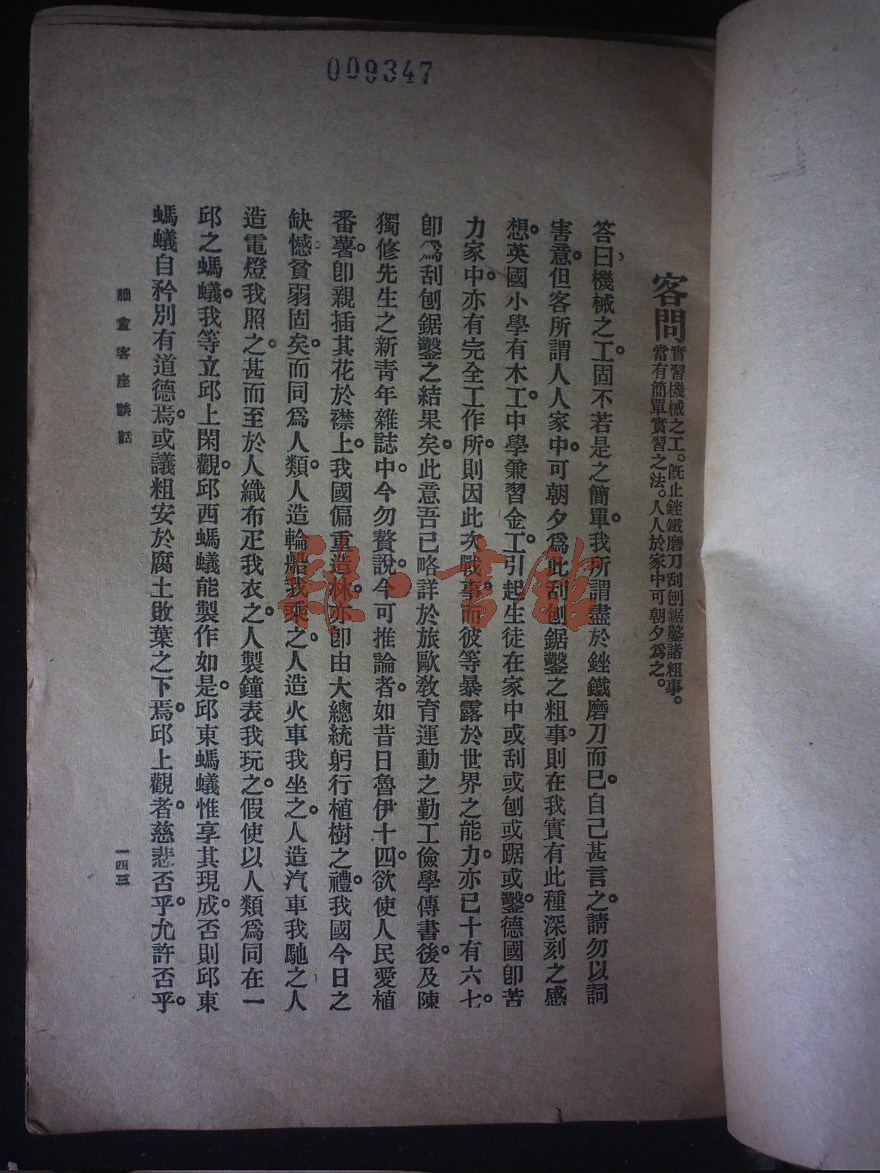 009347
客問
實習機械之工。旣止銼鐵磨刀刮刨鋸鑿諸粗事。
當有簡單實習之法。人人於家中可朝夕爲之。
答曰機械之工。固不若是之簡單。我所謂盡於銼鐵磨刀而已。自己甚言之。請勿以詞
害意。但客所謂人人家中。可朝夕爲此刮刨鋸鑿之粗事。則在我實有此種深刻之感
想。英國小學有木工。中學兼習金工。引起生徒在家中或刮或刨或踞或鑿。德國卽苦
力家中。亦有完全工作所。則因此次戰事。而彼等暴露於世界之能力。亦已十有六七。
卽爲刮刨鋸鑿之結果矣。此意吾已略詳於旅歐敎育運動之勤工儉學傳書後。及陳
獨修先生之新青年雜誌中。今勿贅說。今可推論者。如昔日魯伊十四。欲使人民愛植
番薯。卽親插其花於襟上。我國偏重造林。亦卽由大總統躬行植樹之禮。我國今日之
缺憾。貧弱固矣。而同爲人類。人造輪船我乘之。人造火車我坐之。人造汽車我馳之。人
造電燈我照之。甚而至於人織布疋我衣之。人製鐘表我玩之。假使以人類爲同在一
邱之螞蟻。我等立邱上閑觀。邱西螞蟻能製作如是。邱東螞蟻惟享其現成。否則邱東
螞蟻自矜別有道德焉。或議粗安於腐土敗葉之下焉。邱上觀者。慈悲否乎。允許否乎。
朏盦客座談話
一四三
緑·書館